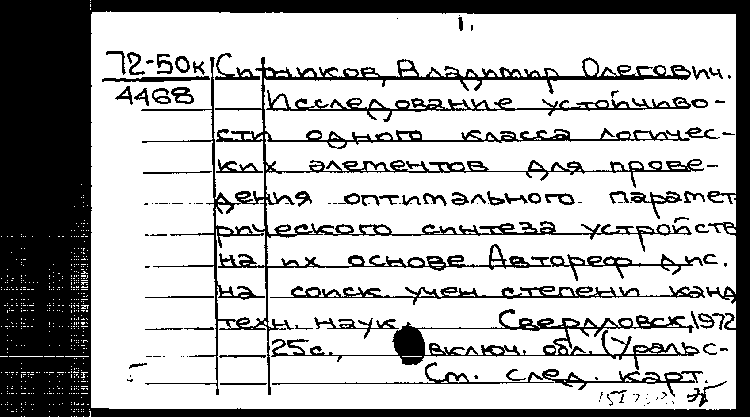 1.
72-50к Ситников, Владимир Олегович.
4468 Исследование устойчиво-
сти одного класса логичес-
ких элементов для прове-
дения оптимального парамет
рического синтеза устройств
на их основе Автореф. дис.
на соиск. учен. степени канд
техн. наук. Свердловск, 1972
25с., включ. обл. (Уральс-
См. след. карт.